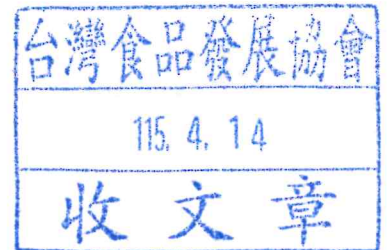 台灣食品發展協會
115. 4. 14
收文章